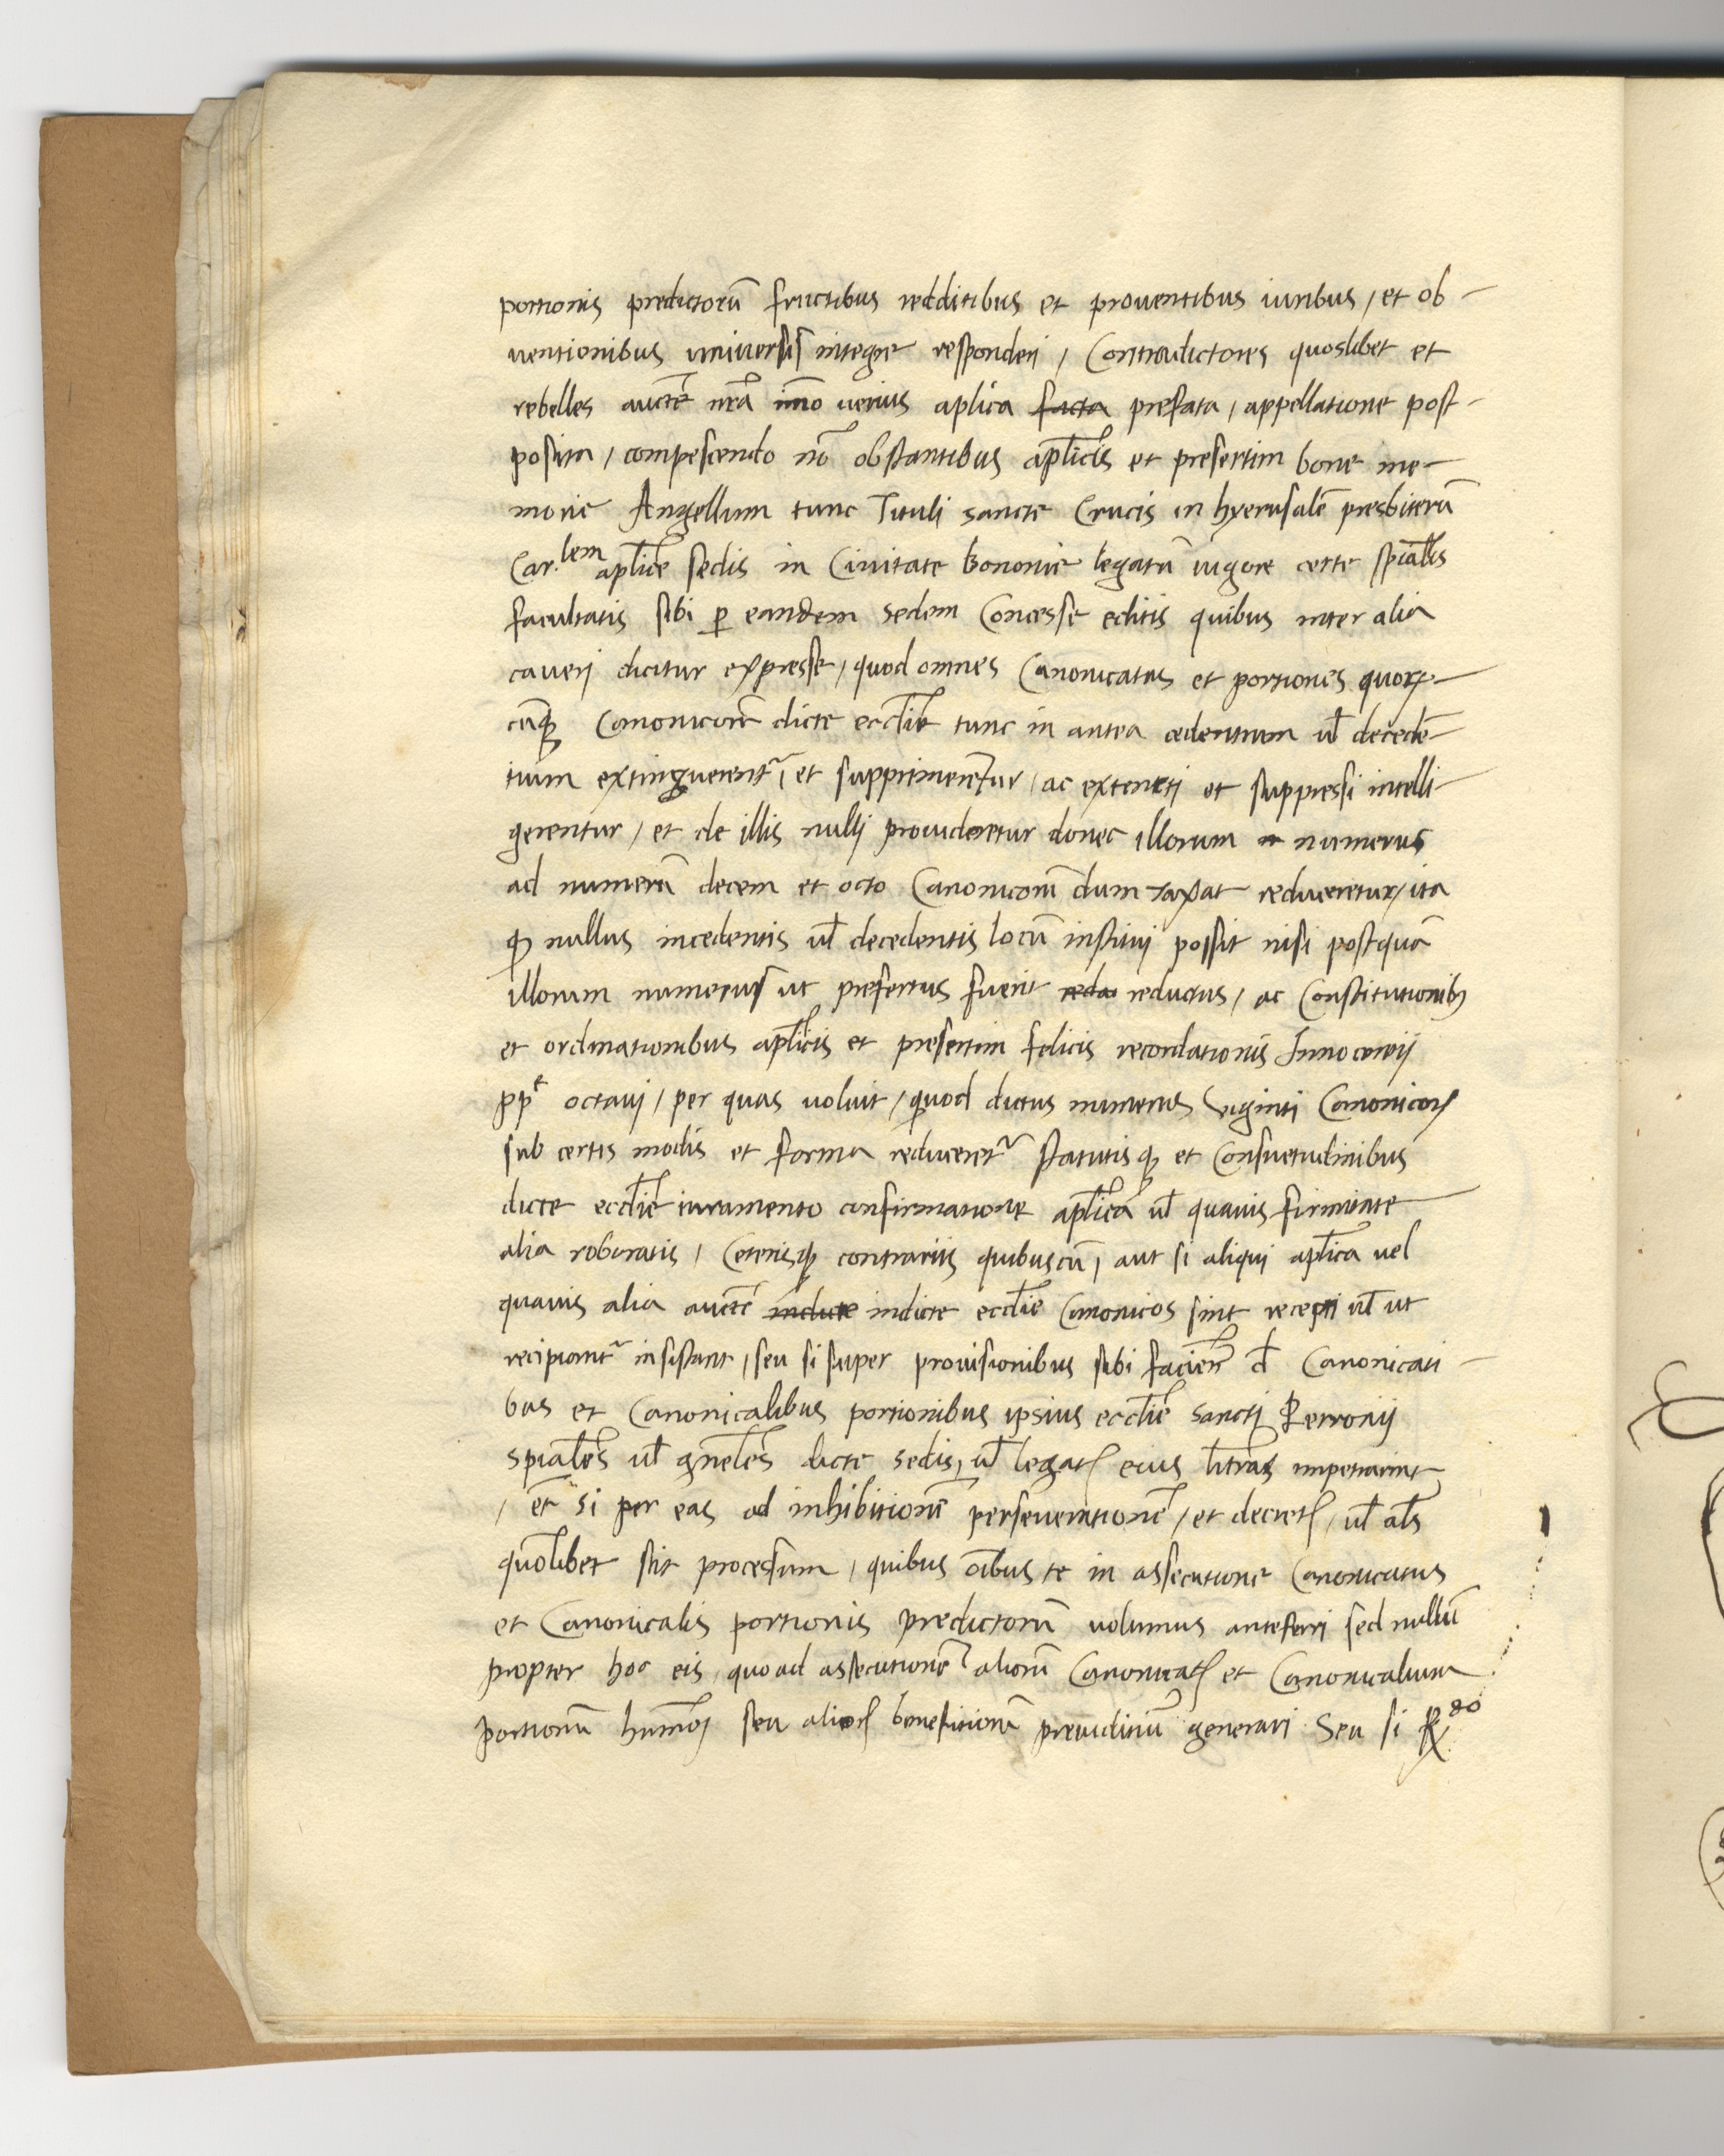 portionis predictorū fructibus redditibus et prouentibus iuribus / et ob-
uentionibus uniuersis integre responderi / Contradictores quoslibet et
rebelles aucte nrā imo uerius aplica facta prefata / appellatione post-
posita / compescendo nō obstantibus aplicis et presertim bone me-
morie Angellum tunc Tituli sancte Crucis in hyerusalē presbiterū
Car.lem aplice sedis in Ciuitate bononie legatū uigore certe spialis
facultatis sibi ꝑ eandem sedem Concesse editis quibus inter alia
caueri dicitur expresse / quod omnes Canonicatus et portiones quor-
cūqꝫ Canonicorū dicte ecclie tunc in antea cedentium ul decedē-
tium extinguerent̃ / et supprimerentur / ac extincti et suppressi intelli-
gerentur / et de illis nulli prouideretur donec illorum n numerus
ad numerū decem et octo Canonicorū dum taxat reduceretur / ita
ꝙ nullus incedentis ul decedentis locū institui possit nisi postquā
illorum numerus ut prefertus fuerit redu reductus / ac Constitutionibꝫ
et ordinationibus aplicis et presertim felicis recordationis Innocentij
pp̃e octaui / per quas uoluit / quod dictus numerus Viginti Canonicoꝝ
sub certis modis et forma reduceret̃ statutisqꝫ et Consuetudinibus
dicte ecclie iuramento confirmatione aplica ul quauis firmitate
alia roboratis / Ceterisqꝫ contrariis quibuscū / aut si aliqui aplica uel
quauis alia aucte indicte indicte ecclie Canonicos sint recepti ul ut
recipiant̃ insistant / seu si super prouisionibus sibi facien d Canonicati-
bus et Canonicalibus portionibus ipsius ecclie sancti Petronij
spiales ul gnales dicte sedis, ul legatꝝ eius litras impetrarint
/ et si per eas ad inhibitionē perseuerationē / et decretꝝ / ul als
quolibet sit processum / quibus oibus te in assecutione Canonicatus
et Canonicalis portionis predictorū uolumus anteferri sed nullū
propter hoc eis, quo ad assecutionē aliorū Canonicatꝝ et Canonicalium
portionū humoi seu alioꝝ beneficiorū preiudiciū generari Seu si